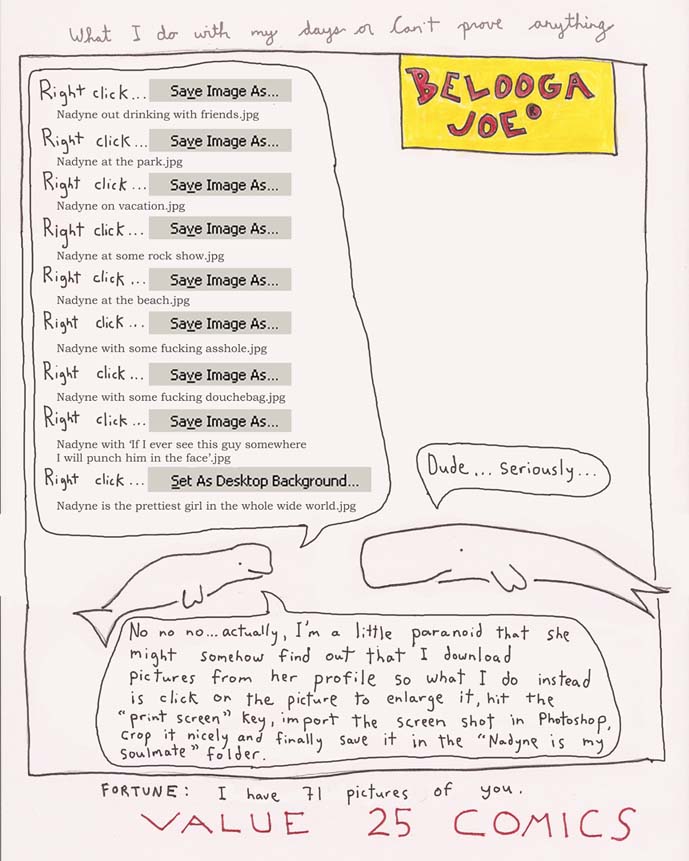 What I do with my days or Can't prove anything
BELOOGA
JOE®
Right click... Save Image As...
Nadyne out drinking with friends.jpg
Right click... Save Image As...
Nadyne at the park.jpg
Right click... Save Image As...
Nadyne on vacation.jpg
Right click... Save Image As...
Nadyne at some rock show.jpg
Right click... Save Image As...
Nadyne at the beach.jpg
Right click... Save Image As...
Nadyne with some fucking asshole.jpg
Right click... Save Image As...
Nadyne with some fucking douchebag.jpg
Right click... Save Image As...
Nadyne with 'If I ever see this guy somewhere
I will punch him in the face'.jpg
Right click... Set As Desktop Background...
Nadyne is the prettiest girl in the whole wide world.jpg
Dude... seriously...
No no no... actually, I'm a little paranoid that she
might somehow find out that I download
pictures from her profile so what I do instead
is click on the picture to enlarge it, hit the
"print screen" key, import the screen shot in Photoshop,
crop it nicely and finally save it in the "Nadyne is my
soulmate" folder.
FORTUNE: I have 71 pictures of you.
VALUE 25 COMICS